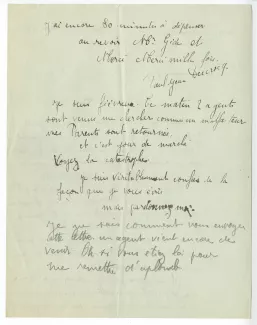 J'ai encore 30 minutes à dépenser
au revoir Mr Gide et
Merci Merci mille fois.
Paul Jean
je suis fiévreux. Ce matin 2 agents
sont venus me chercher comme un malfaiteur
mes Parents sont retournés.
et c'est jour de marché
Voyez la catastrophe
je suis véritablement confus de la
façon que je vous écris
mais pardonnez moi.
je ne sais comment vous envoyer
cette lettre un agent vient encore de
venir Oh si vous étiez là pour
me remettre d'aplomb